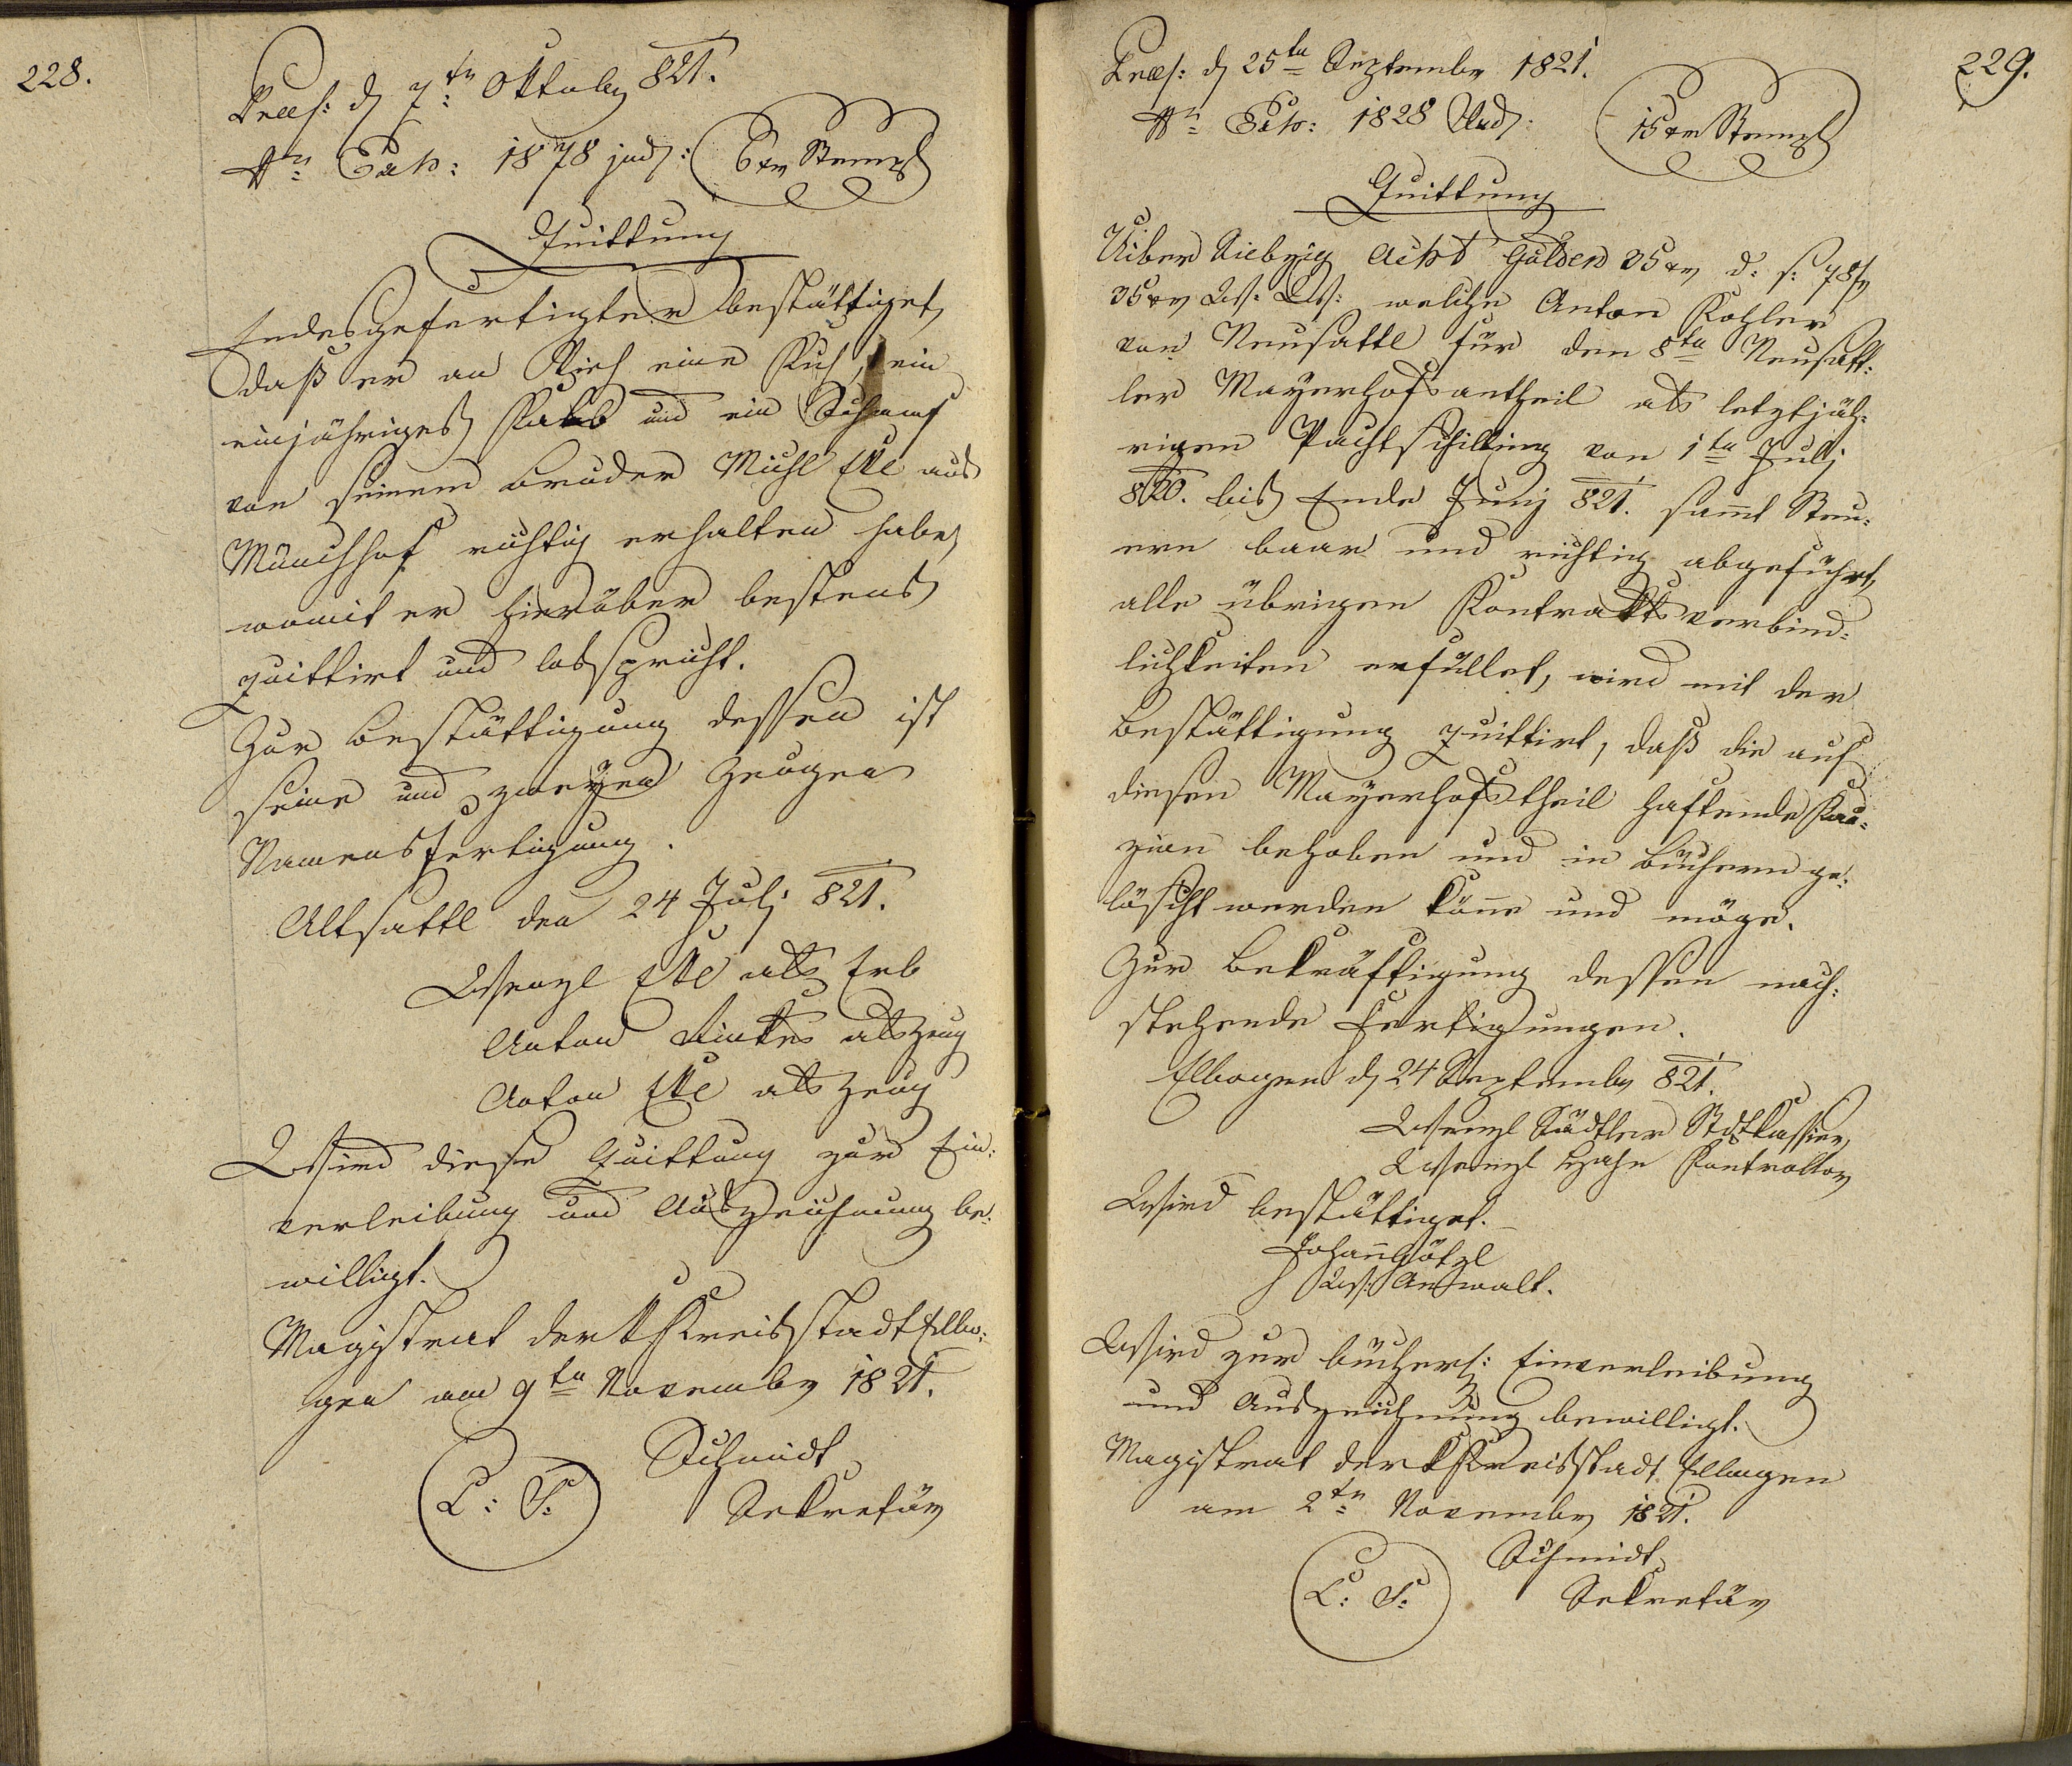 228.
Praes: d 7tn Oktober 821.
Nro Exh: 1878 jud: 6 xr Stempl
Quittung
Endesgefertigter bestättiget,
daß er an Vieh eine Kuh, ein
einjähriges Kalb und ein Schaaf
von seinem Bruder Michl Ekl aus
Münchhof richtig erhalten habe,
womit er hierüber bestens
quittirt und losspricht.
Zur Bestättigung dessen ist
seine und zweyen Zeugen
Namensfertigung.
Altsattl den 24 Julj 821.
Wenzl Ekl als Erb
Anton als Zeug
Anton Ekl als Zeug
Wird diese Quittung zur Ein:
verleibung und Auszeichnung be:
willigt.
Magistrat der k Kreisstadt Ellbo:
gen am 9tn November 1821.
Schmidt
L: S: Sekretär
229.
Praes: d 25tn September 1821.
Nro Exh: 1828 Jud: 15 xr Stempl
Quittung
Uiber Siebzig Acht Gulden 35 xr d: s: 78 f
35 xr W: W: welche Anton Kohler
von Neusattl für den 8tn Neusatt:
ler Mayerhofsantheil als letztjäh:
rigen Pachtschilling von 1tn Julj
820. bis Ende Junj 821. samt Steu:
ern baar und richtig abgeführt,
alle übrigen Kontraktsverbind:
lichkeiten erfüllet, wird mit der
Bestättigung quittirt, daß die auf
diesen Mayerhofstheil haftende Kau:
zion behoben und in Büchern ge:
löscht werden könne und möge.
Zur Bekräftigung dessen nach:
stehende Fertigungen.
Elbogen d 24 September 821.
Wenzl Städtler Stdtkassier,
Wenzl Hahn Kontrollor
Wird bestättiget.
Johann Götzl
Ws: Anwalt.
Wird zur bücherl: Einverleibung
und Auszeichnung bewilligt.
Magistrat der k Kreisstadt Ellbogen
am 2tn November 1821.
Schmidt
L: S: Sekretär